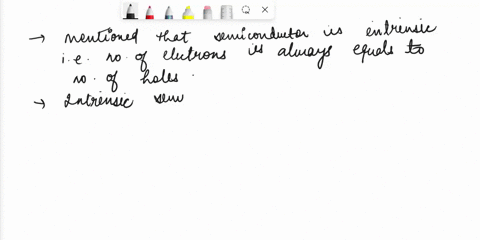 → mentioned that semiconductor is intrinsic
i.e. no. of elutrons is always equals to
no. of holes.
→ Intrinsic sem